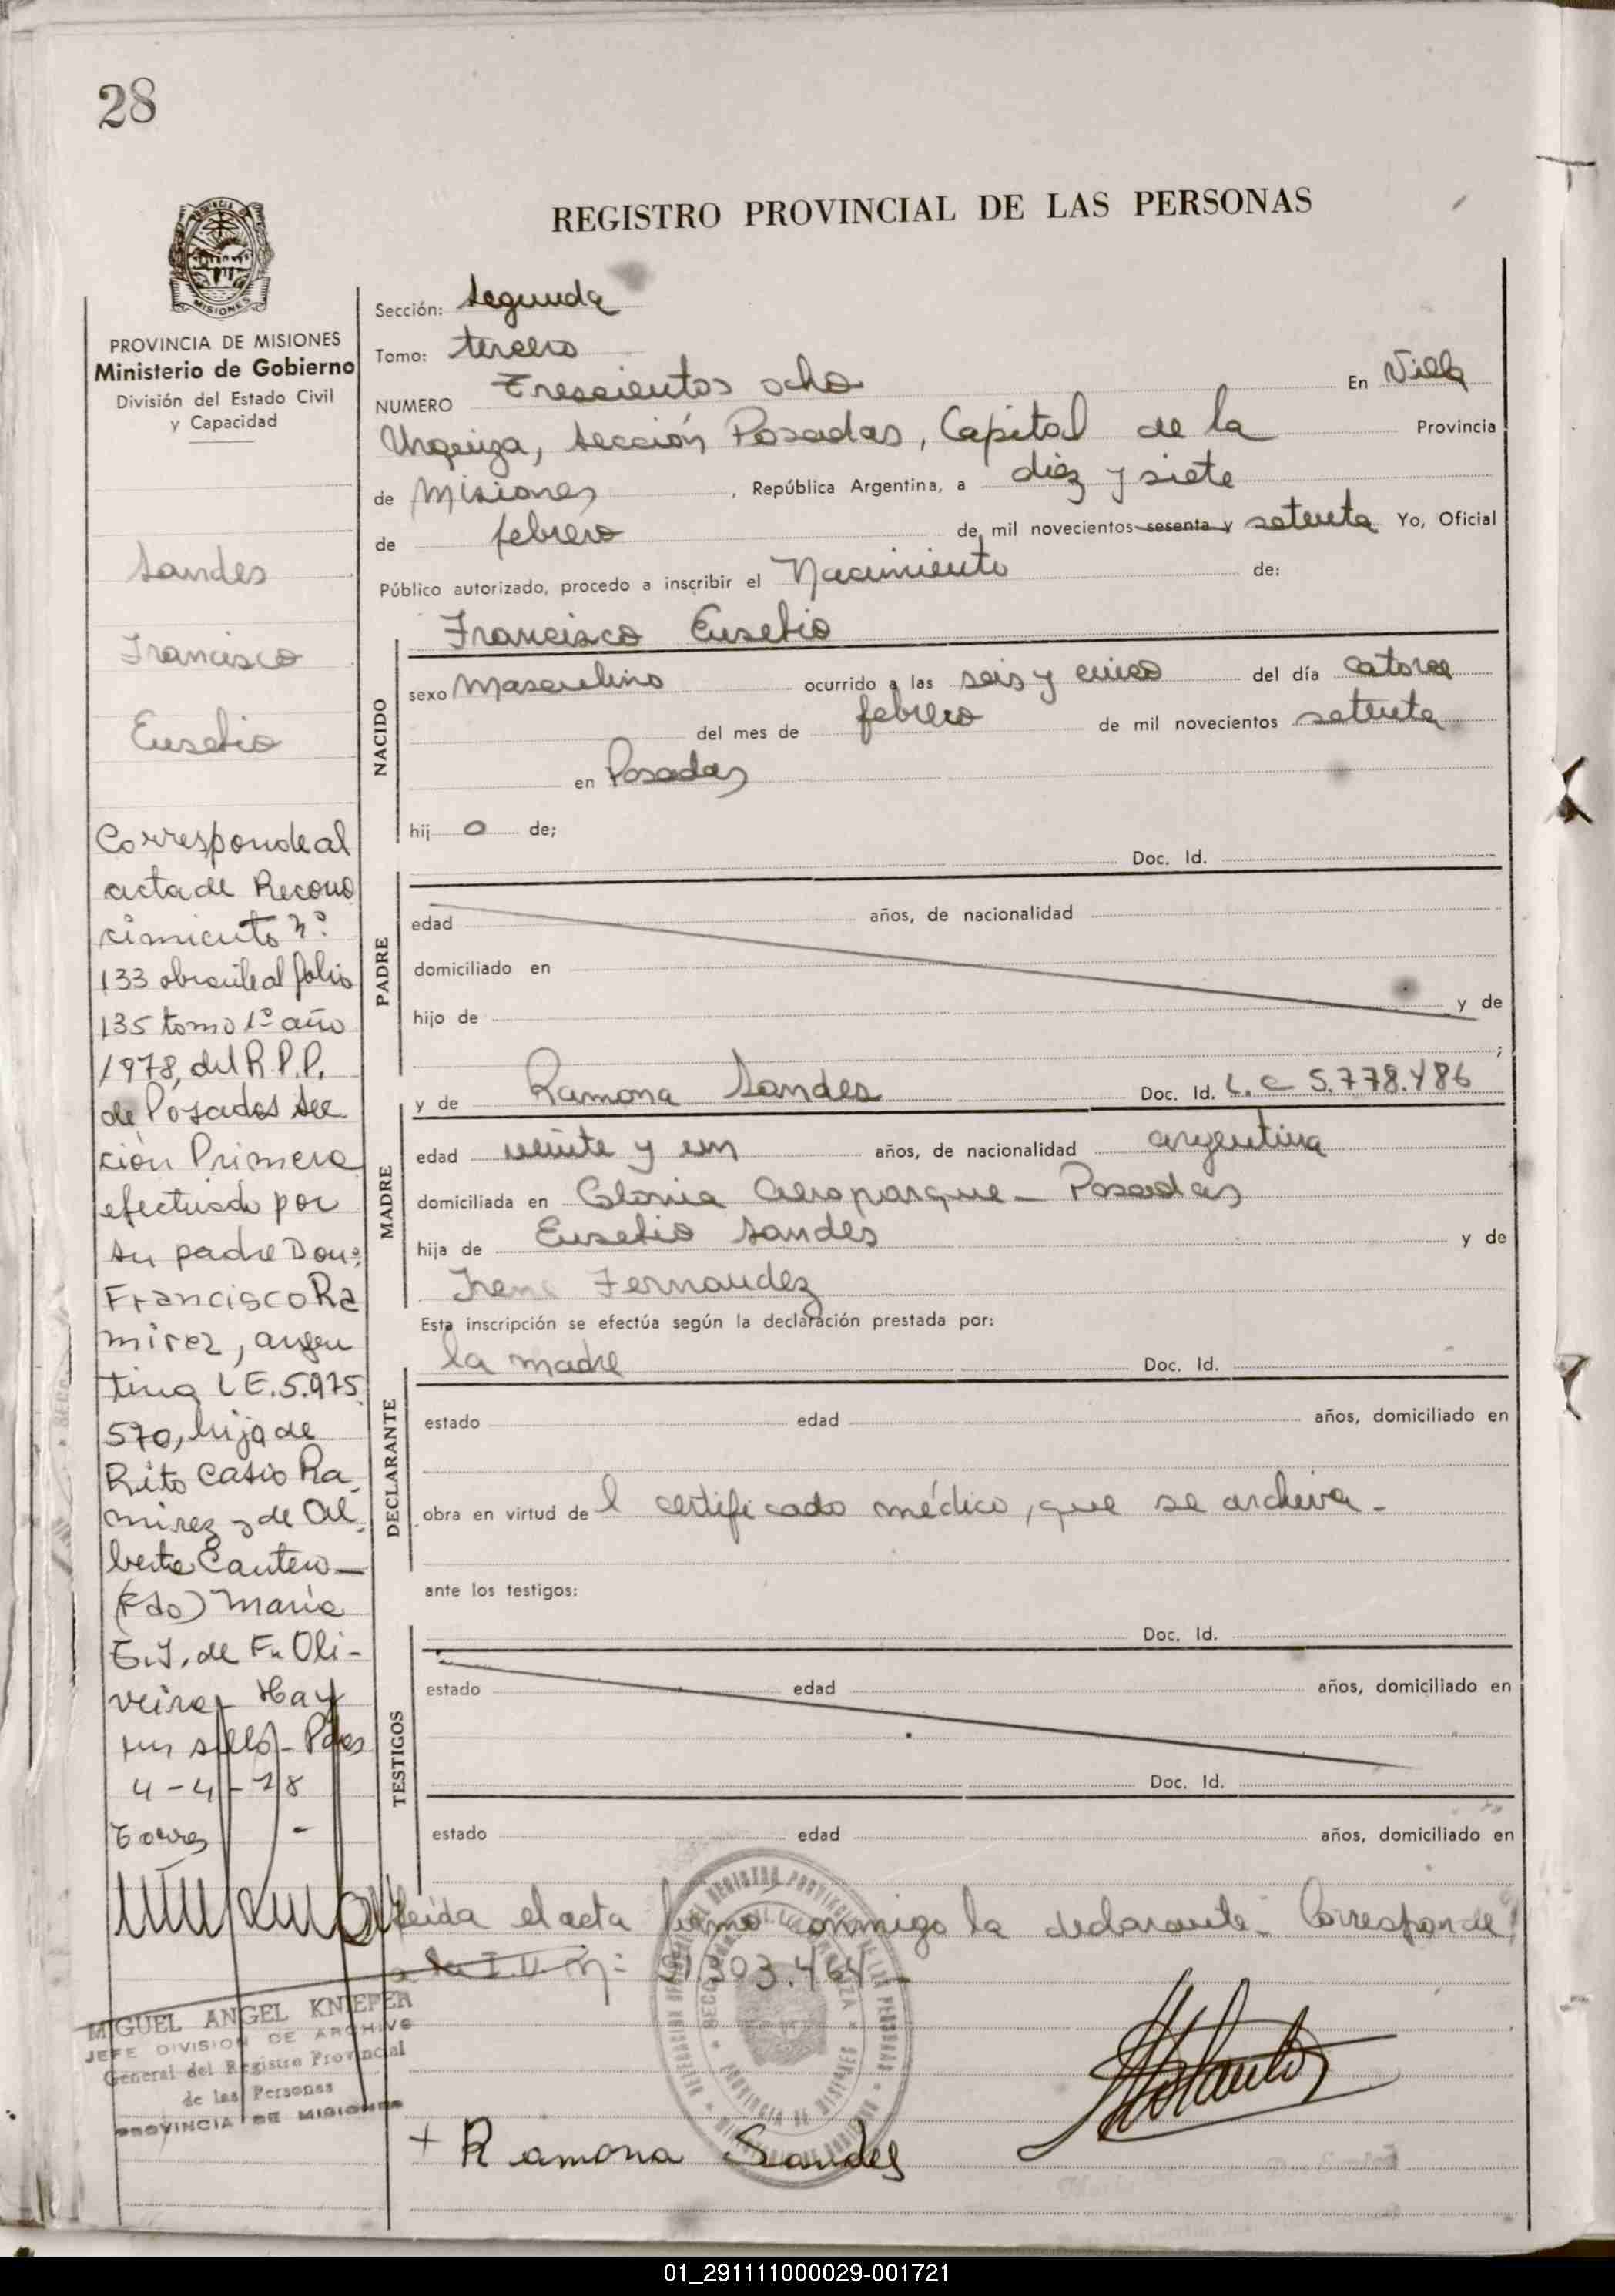 28
REGISTRO PROVINCIAL DE LAS PERSONAS
MISIONES
PROVINCIA DE MISIONES
Ministerio de Gobierno
División del Estado Civil
y Capacidad
Sandes
Francisco
Eusebio
Corresponde al
acta de Recono
cimiento nº
133 obrante al folio
135 tomo 1º año
1978, del R.P.P.
de Posadas Sec
ción Primera
efectuado por
su padre Don:
Francisco Ra
mirez, argen
tino L E. 5.975
570, hijo de
Rito Casio Ra
mirez y de Al
berta Cantero
(Fdo) María
E. J. de F. Oli-
veira - Hay
un sello - Pdas
4-4-78
Torres
MIGUEL ANGEL KNIEFER
JEFE DIVISION DE ARCHIVO
General del Registro Provincial
de las Personas
PROVINCIA DE MISIONES
Sección: Segunda
Tomo: tercero
NUMERO Trescientos ocho En Villa
Urquiza, Sección Posadas, Capital de la Provincia
de Misiones, República Argentina, a diez y siete
de febrero de mil novecientos sesenta y setenta Yo, Oficial
Público autorizado, procedo a inscribir el Nacimiento de:
Francisco Eusebio
NACIDO
sexo Masculino ocurrido a las seis y cinco del día catorce
del mes de febrero de mil novecientos setenta
en Posadas
hij o de;
Doc. Id.
PADRE
edad años, de nacionalidad
domiciliado en
hijo de y de
;
y de Ramona Sandes Doc. Id. L. C 5.778.486
MADRE
edad veinte y un años, de nacionalidad argentina
domiciliada en Colonia Aeroparque - Posadas
hija de Eusebio Sandes y de
Irene Fernandez
Esta inscripción se efectúa según la declaración prestada por:
la madre Doc. Id.
DECLARANTE
estado edad años, domiciliado en
obra en virtud de l certificado médico, que se archiva -
ante los testigos:
Doc. Id.
TESTIGOS
estado edad años, domiciliado en
Doc. Id.
estado edad años, domiciliado en
Leida el acta firma conmigo la declarante - Corresponde
a la I.U.
+ Ramona Sandes
01_291111000029-001721